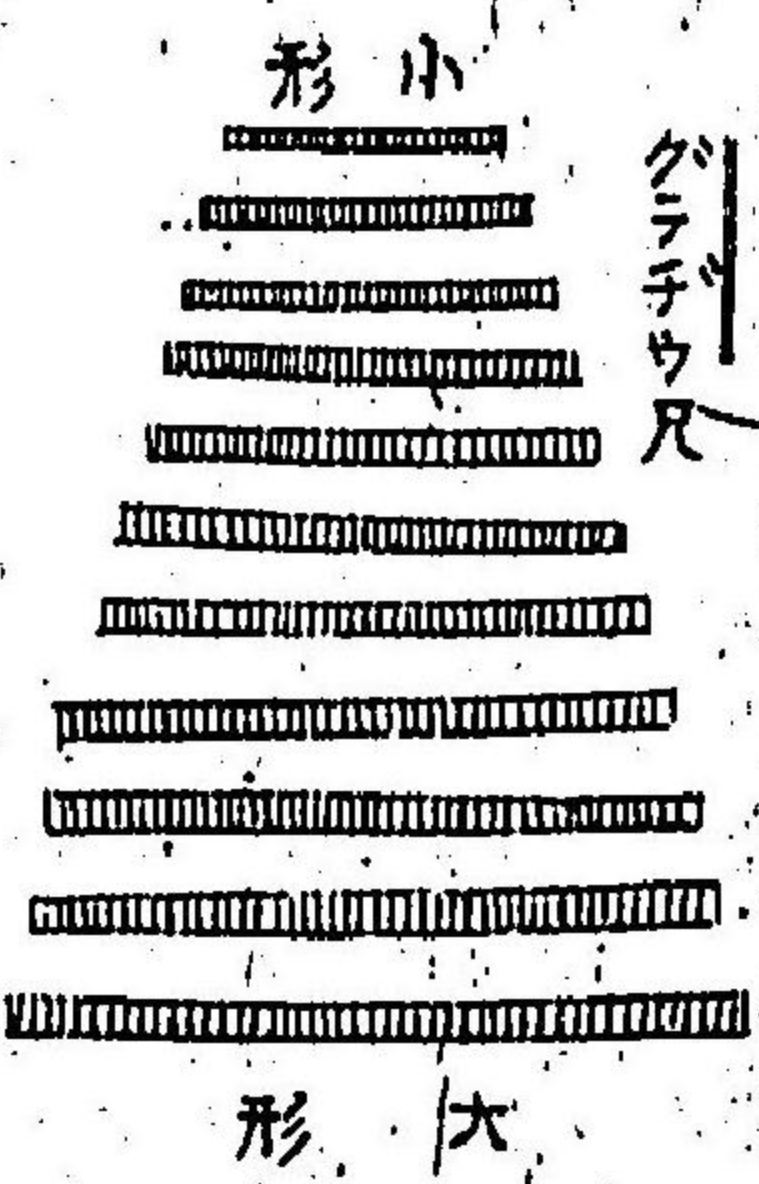 小形
グラヂウ尺
大形